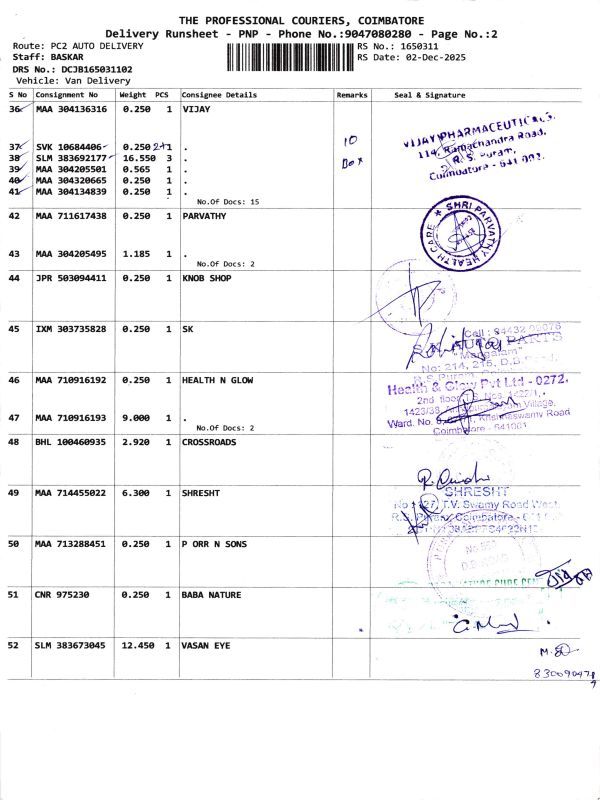 THE PROFESSIONAL COURIERS, COIMBATORE
Delivery Runsheet - PNP - Phone No.:9047080280 - Page No.:2
Route: PC2 AUTO DELIVERY
RS No.: 1650311
Staff: BASKAR
RS Date: 02-Dec-2025
DRS No.: DCJB165031102
Vehicle: Van Delivery
S No Consignment No Weight PCS Consignee Details Remarks Seal & Signature
36 MAA 304136316 0.250 1 VIJAY
VIJAY PHARMACEUTICALS.
114, Ramachandra Road,
R. S. Puram,
Coimbatore - 641 002.
10
Box
37 SVK 10684406 0.250 2+1 .
38 SLM 383692177 16.550 3 .
39 MAA 304205501 0.565 1 .
40 MAA 304320665 0.250 1 .
41 MAA 304134839 0.250 1 .
No.Of Docs: 15
42 MAA 711617438 0.250 1 PARVATHY
SHRI PARVATHY HEALTH CARE
43 MAA 304205495 1.185 1 .
No.Of Docs: 2
44 JPR 503094411 0.250 1 KNOB SHOP
45 IXM 303735828 0.250 1 SK
Cell : 94432
AUTO PARTS
"Mangalam"
No: 214, 215, D.B. Road,
R.S. Puram,
46 MAA 710916192 0.250 1 HEALTH N GLOW
Health & Glow Pvt Ltd - 0272.
2nd floor,
1423/39,
Village,
Ward. No. Krishnaswamy Road
Coimbatore - 641001.
47 MAA 710916193 9.000 1 .
No.Of Docs: 2
48 BHL 100460935 2.920 1 CROSSROADS
49 MAA 714455022 6.300 1 SHRESHT
SHRESHT
T.V. Swamy Road West,
R.S. Puram, Coimbatore -
50 MAA 713288451 0.250 1 P ORR N SONS
NATURE CURE
51 CNR 975230 0.250 1 BABA NATURE
52 SLM 383673045 12.450 1 VASAN EYE